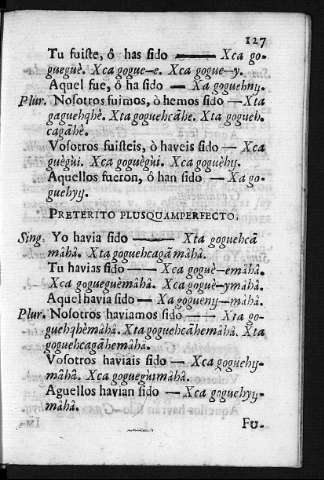 127
Tu fuiste, ô has sido —— Xca go-
gueguè. Xca gogue-e. Xca gogue-y.
Aquel fue, ô ha sido — Xa goguehny.
Plur. Nosotros fuimos, ò hemos sido — Xta
gaguehqhê. Xta goguehcâhe. Xta gogueh.
cagâhê.
Vosotros fuisteis, ò haveis sido — Xca
guègùi. Xca goguègùi. Xca goguèhy.
Aquellos fueron, ò han sido — Xa go-
guehyy.
PRETERITO PLUSQUAMPERFECTO.
Sing. Yo havia sido —— Xta goguehcâ
mâhâ. Xta goguehcagâ mâhâ.
Tu havias sido —— Xca goguè-emâhâ.
Xca gogueguèmâhâ. Xca goguè-ymâhâ.
Aquel havia sido — Xa gogueny-mâhâ.
Plur. Nosotros haviamos sido —— Xta go-
guehqhèmâhâ. Xta goguehcâhemâhâ. Xta
goguehcagâhemâhâ.
Vosotros haviais sido — Xca goguehy-
mâhâ. Xca gogueguimâhâ.
Aguellos havian sido — Xca goguehyy-
mâhâ.
Fu-